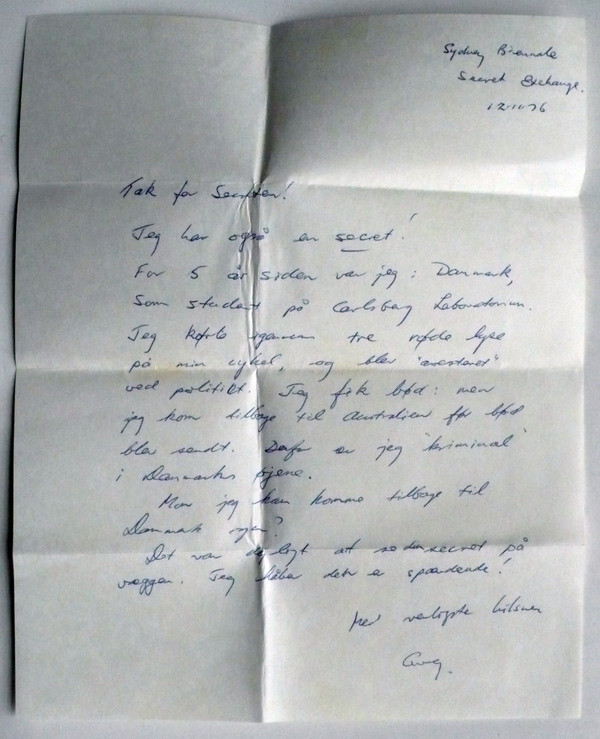 Sydney Biennale
Secret Exchange.
12.11.76
Tak for Secreten!
Jeg har også en secret!
For 5 år siden var jeg i Danmark,
Som student på Carlsberg Laboratorium.
Jeg kørte igennem tre røde lyse
på min cykel, og blev "arresteret"
ved politict. Jeg fik bød: men
jeg kom tilbage til Australien før bød
blev sendt. Defor er jeg "kriminal"
i Danmarks øjene.
Mon jeg kan komme tilbage til
Danmark igen?
Det var dejligt at se din secret på
væggen. Jeg håber dette er spændende!
Med venligste hilsner